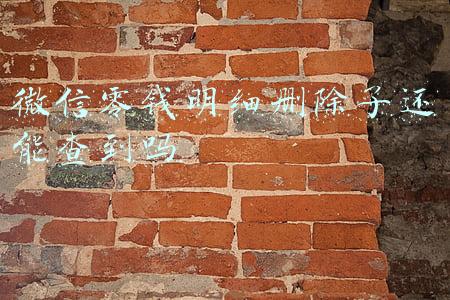 微信零钱明细删除子还
能查到吗